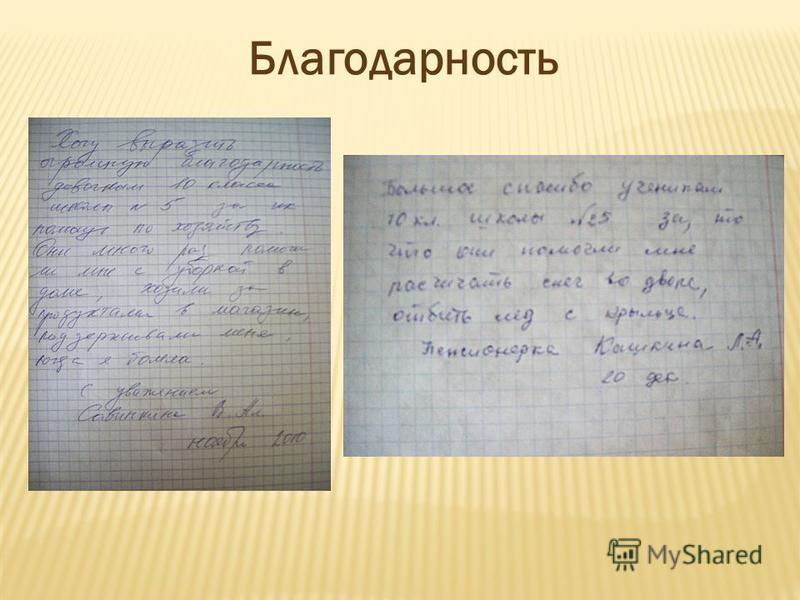 Благодарность
Хочу выразить
огромную благодарность
девочкам 10 класса
школы № 5 за их
помощь по хозяйству.
Они много раз помога
ли мне с уборкой в
доме, ходили за
продуктами в магазин,
поддерживали меня,
когда я болела.
С уважением
Савинкина В.
ноябрь 2010
Большое спасибо ученикам
10 кл. школы №5 за, то
что они помогли мне
расчичать снег во дворе,
отбить лёд с крыльца.
Пенсионерка Кашкина Л.А.
20 дек.
MyShared